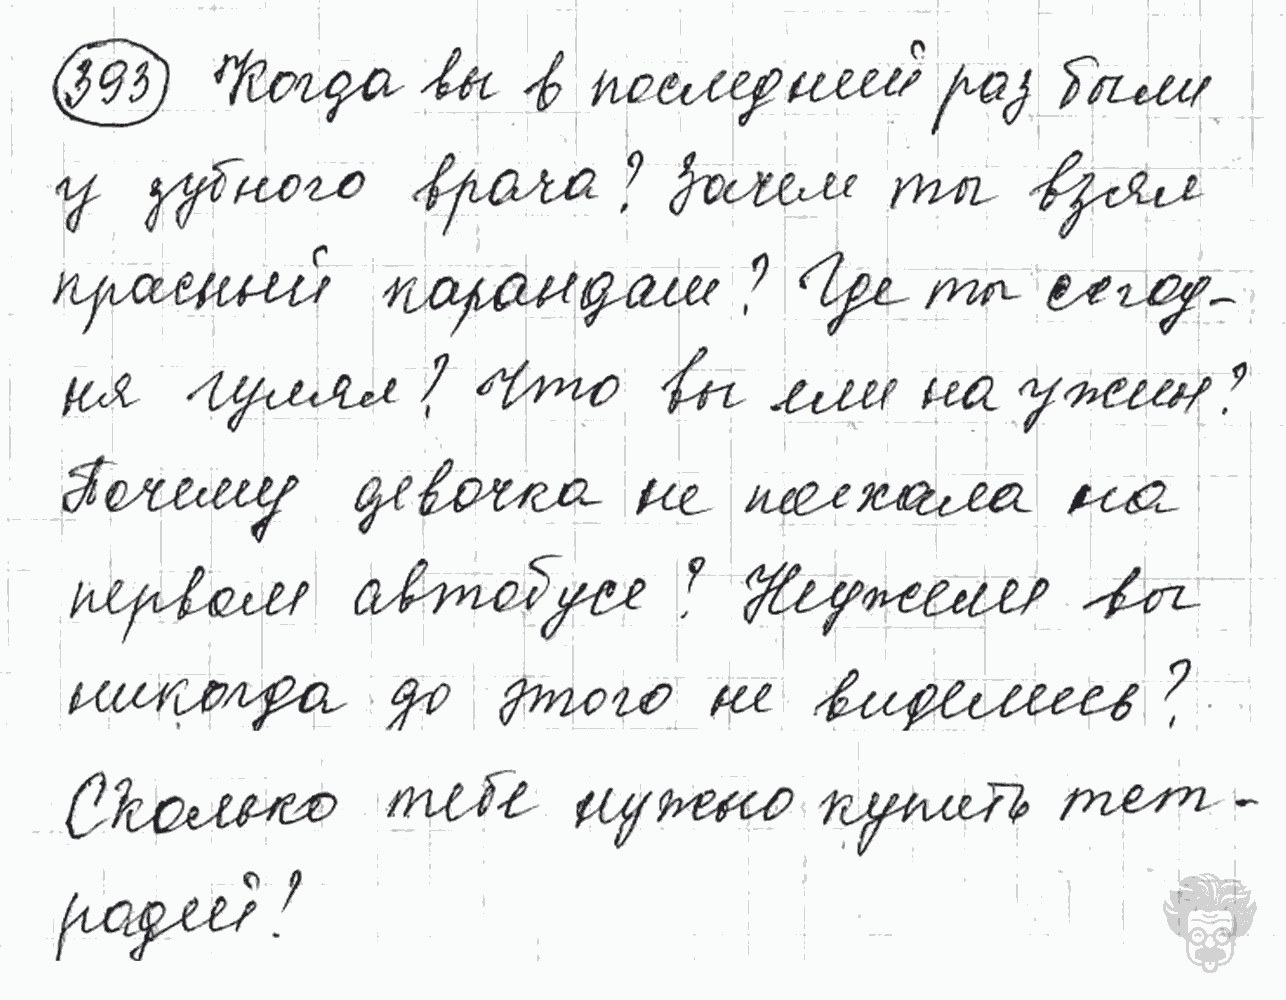 393 Когда вы в последний раз были
у зубного врача? Зачем ты взял
красный карандаш? Где ты сегод-
ня гулял? Что вы ели на ужин?
Почему девочка не поехала на
первом автобусе? Неужели вы
никогда до этого не виделись?
Сколько тебе нужно купить тет-
радей?